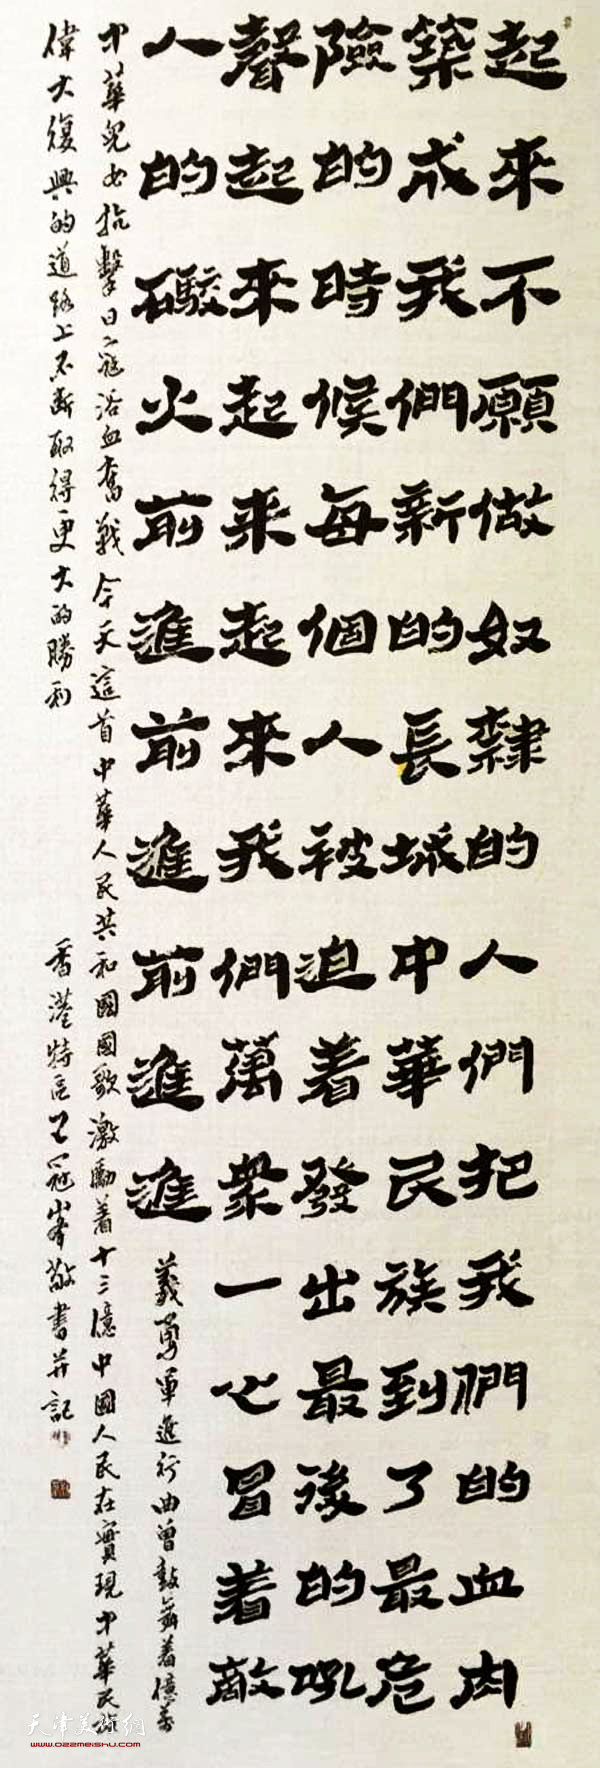 起來不願做奴隸的人們把我們的血肉
築成我們新的長城中華民族到了最危
險的時候每個人被迫着發出最後的吼
聲起來起来起來我們萬衆一心冒着敵
人的礮火前進前進前進進
義勇軍進行曲曾鼓舞着億萬
中華兒女抗擊日寇浴血奮戰今天這首中華人民共和國國歌激勵着十三億中國人民在實現中華民族
偉大復興的道路上不斷取得更大的勝利
香港特區王冠峯敬書并記
天津美術網
www.022meishu.com